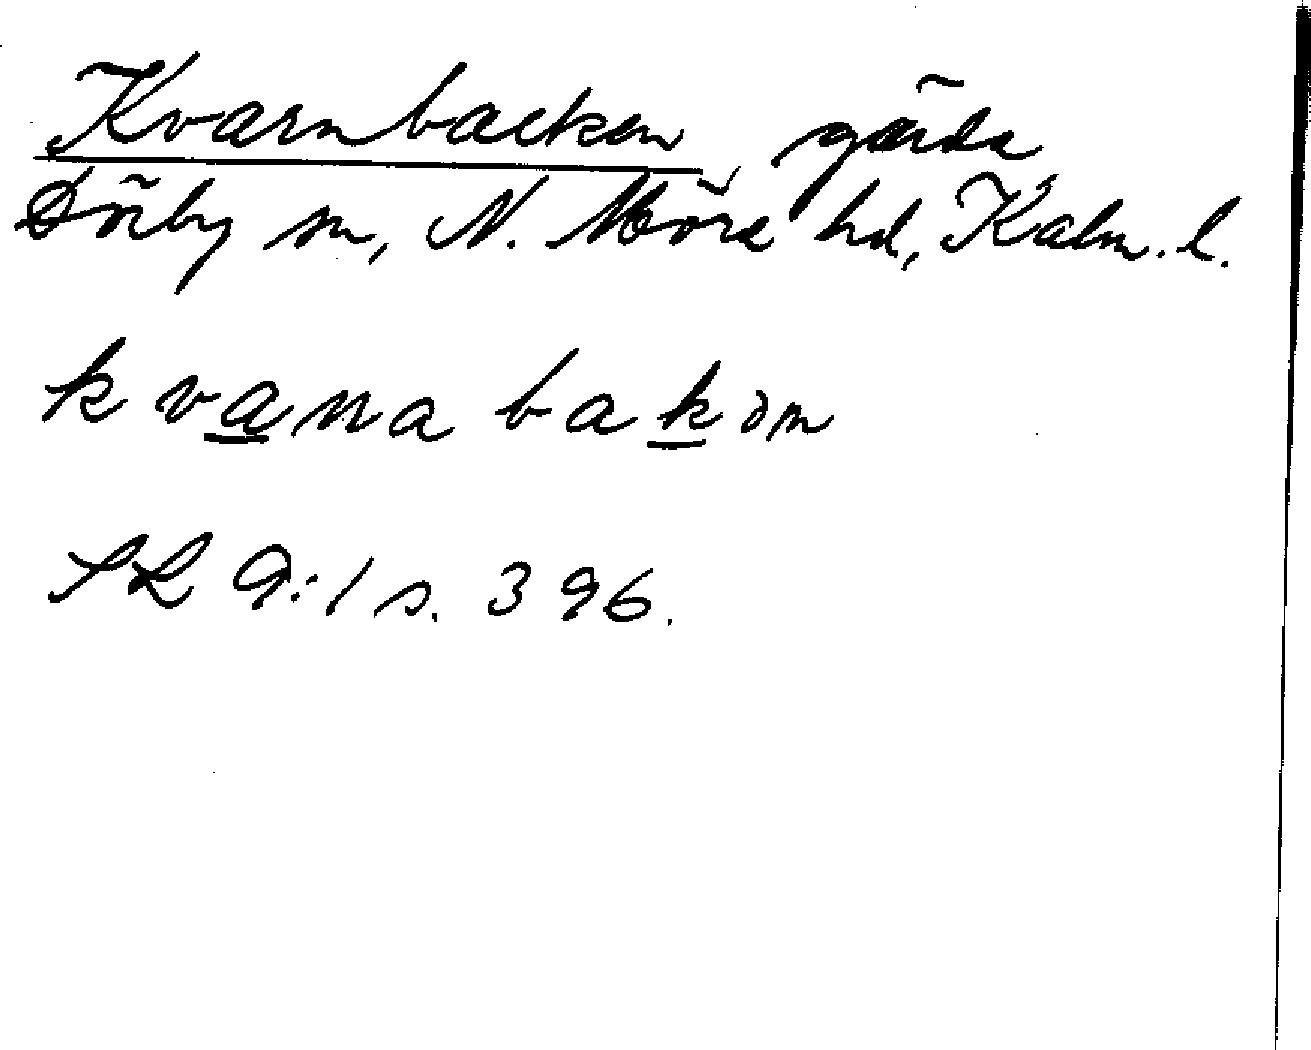 Kvarnbacken, gärde
Dörby sn, N. Möre hd, Kalm. l.
kvana bakən
SL 9:1 s. 396.